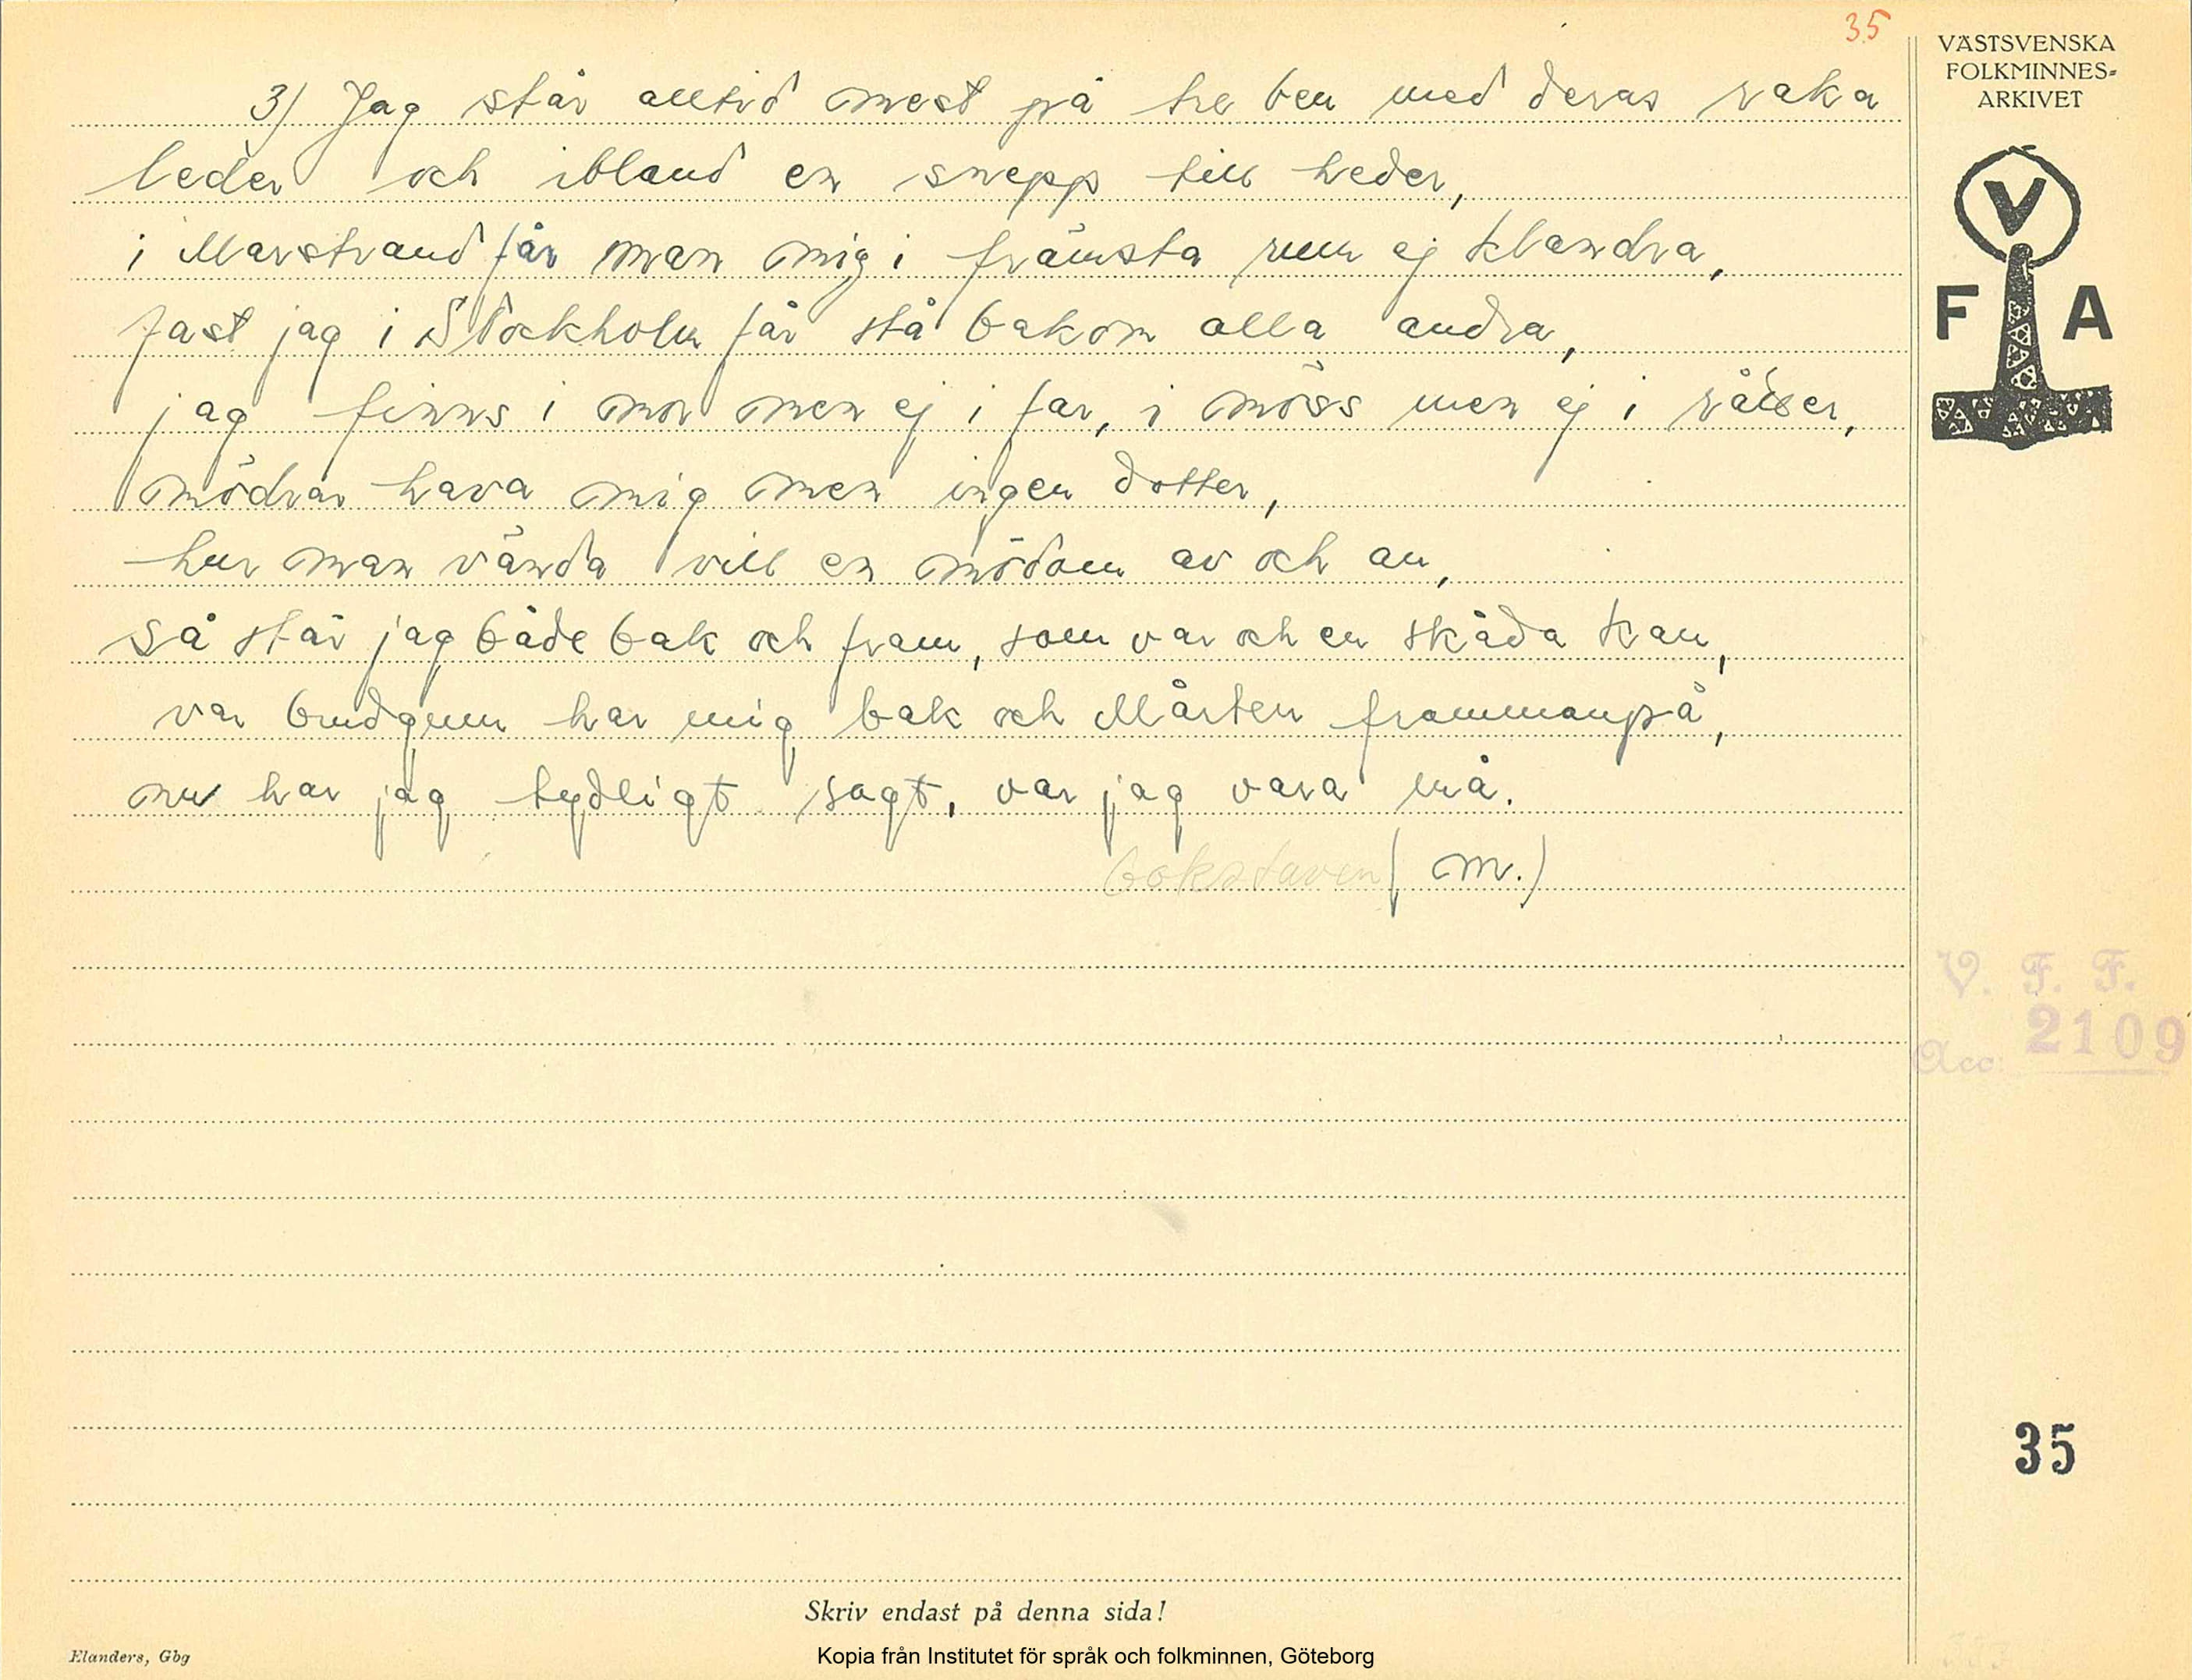 35
VÄSTSVENSKA
FOLKMINNES-
ARKIVET
V
F A
3) Jag står alltid mest på tre ben med deras raka
leder och ibland en snepp till heder,
i Marstrand får man mig i främsta rum ej klandra,
fast jag i Stockholm får stå bakom alla andra,
jag finns i mor men ej i far, i möss men ej i
mödrar hava mig men ingen dotter,
hur man vända vill en mödom av och an,
så står jag både bak och fram, som var och en skåda kan,
var brudgum har mig bak och Mårten frammanpå,
nu har jag tydligt sagt, var jag vara må.
bokstaven (m.)
V. F. F.
Acc. 2109
35
Skriv endast på denna sida!
Elanders, Gbg
Kopia från Institutet för språk och folkminnen, Göteborg